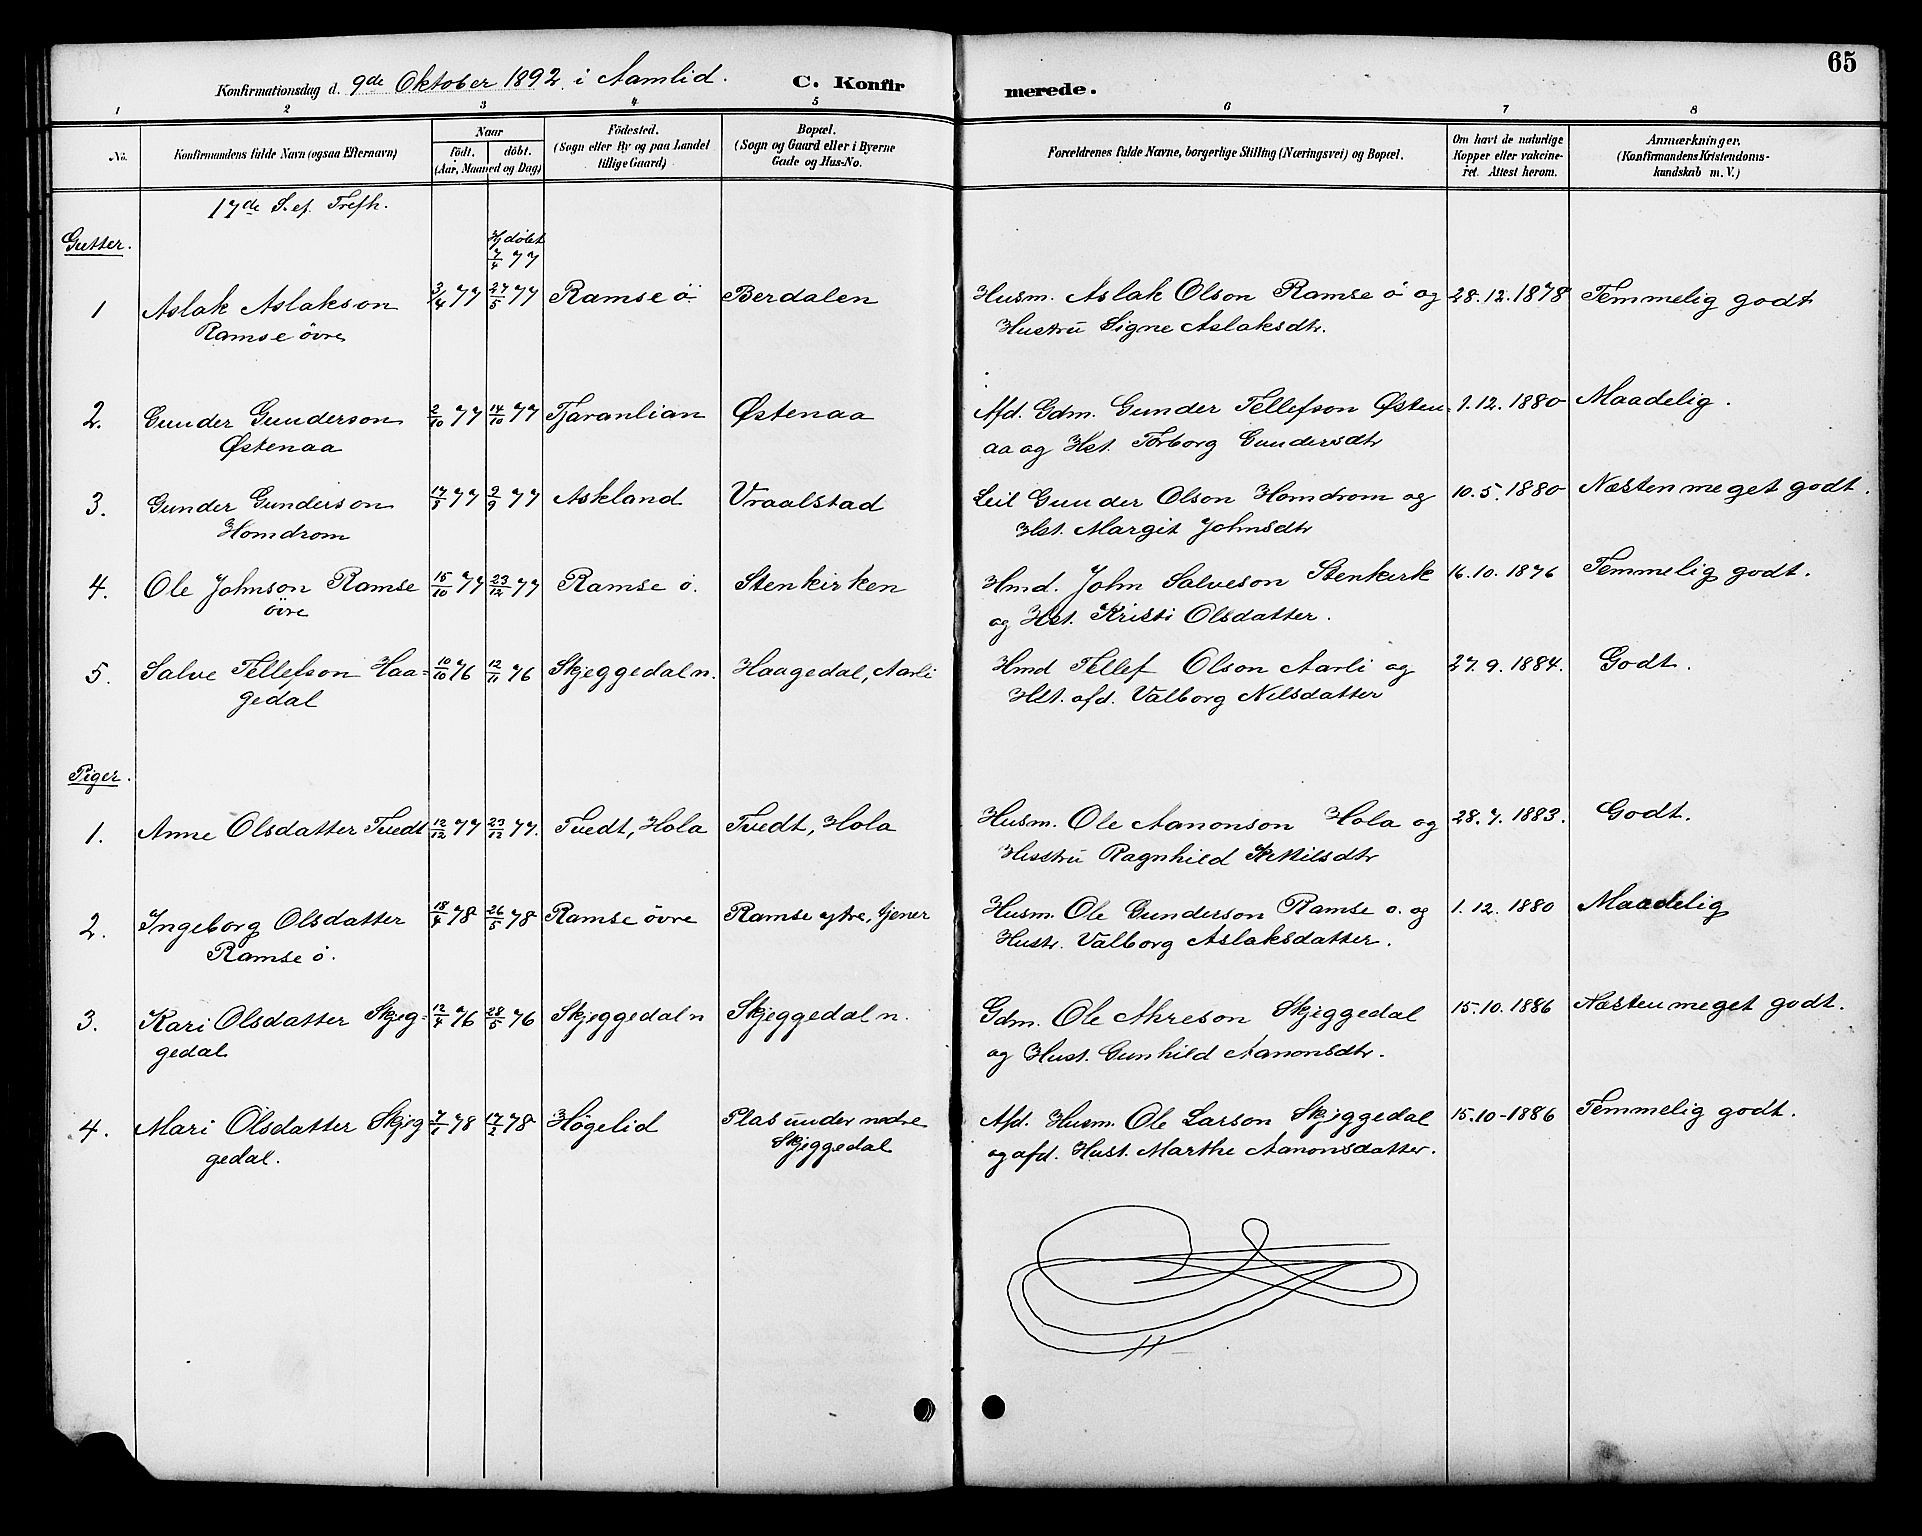 65
Konfirmationsdag d. 9de Oktober 1892 i Aamlid. C. Konfirmerede.
1 2 3 4 5 6 7 8
No. Konfirmandens fulde Navn (ogsaa Efternavn) Naar födt. döbt. (Aar, Maaned og Dag) Födested. (Sogn eller By og paa Landet tillige Gaard) Bopæl. (Sogn og Gaard eller i Byerne Gade og Hus-No. Forældrenes fulde Navne, borgerlige Stilling (Næringsvei) og Bopæl. Om havt de naturlige Kopper eller vakcineret. Attest herom. Anmærkninger. (Konfirmandens Kristendomskundskab m. V.)
17de S. ef. Trefh.
Gutter.
Hjdøbt
7/4 77
1 Aslak Aslakson 3/4 77 27/5 77 Ramse ö Berdalen Husm. Aslak Olson Ramse ö og 28.12.1878 Temmelig godt
Ramse övre Hustru Signe Aslaksdtr.
2. Gunder Gunderson 2/10 77 14/10 77 Tjaranlian Østenaa Afd. Gdm. Gunder Tellefson Østen 1.12.1880 Maadelig.
Østenaa aa og Hst. Torborg Gundersdtr
3. Gunder Gunderson 77 2/9 77 Askland Vraalstad Leil Gunder Olson Homdrom og 10.5.1880 Næsten meget godt.
Homdrom Hst. Margit Johnsdtr
4. Ole Johnson Ramse 15/10 77 23/12 77 Ramse ö. Stenkirken Hmd. John Salveson Stenkirk 16.10.1876 Temmelig godt.
övre og Hst. Kristi Olsdatter.
5. Salve Tellefson Haa- 10/10 76 12/11 76 Skjeggedal n. Haagedal, Aarli Hmd Tellef Olson Aarli og 27.9.1884. Godt.
gedal Hst. afd. Valborg Nilsdatter
Piger.
1. Anne Olsdatter Tvedt 12/12 77 23/12 77. Tvedt, Hola Tvedt, Hola Husm. Ole Aanonson Hola og 28.7.1883. Godt.
Hustru Ragnhild Kittilsdtr
2. Ingeborg Olsdatter 18/4 78 26/5 78 Ramse övre Ramse ytre, tjener Husm. Ole Gunderson Ramse o. og 1.12.1880 Maadelig
Ramse ö. Hustr. Valborg Aslaksdatter.
3. Kari Olsdatter Skjeg- 12/4 76 28/5 76 Skjeggedal n Skjeggedal n. Gdm. Ole Akreson Skjeggedal 15.10.1886 Næsten meget godt.
gedal og Hust. Gunhild Aanonsdtr.
4. Mari Olsdatter Skjeg 7/1 78 17/2 78 Høgelid Plas under nedre Afd. Husm. Ole Larson Skjeggedal 15.10-1886 Temmelig godt.
gedal. Skjeggedal og afd. Hust. Marthe Aanonsdatter.